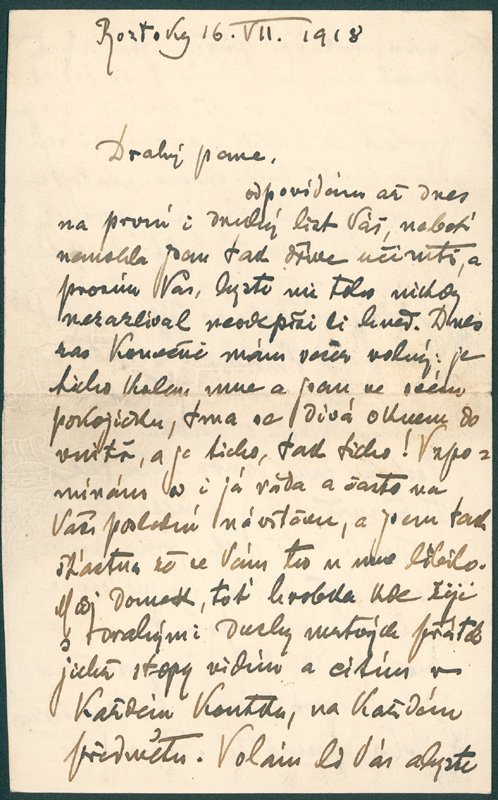 Roztoky 16. VII. 1918
Drahý pane,
odpovídám až dnes
na první i druhý list Váš, neboť
nemohla jsem tak dříve učiniti, a
prosím Vás, byste mi toho nikdy
nezazlíval neodepíši li hned. Dnes
zas konečně mám večer volný: je
ticho kolem mne a jsem ve svém
pokojíčku, tma se dívá oknem do
vnitř, a je ticho, tak ticho! Vzpo=
mínám si i já ráda a často na
Vaši poslední návštěvu, a jsem tak
šťastna že se Vám tu u mne líbilo.
Můj domek, toť hrobka kde žiji
s drahými duchy mrtvých přátel
jichž stopy vidím a cítím v
každém koutku, na každém
předmětu. Volám li Vás abyste